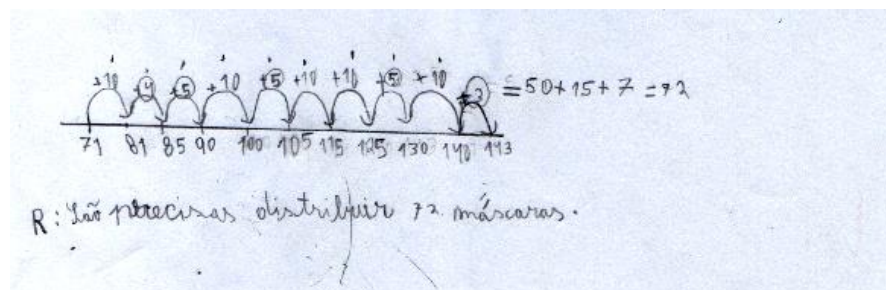 +10 +4 +5 +10 +5 +10 +10 +5 +10 +3 = 50 + 15 + 7 = 72
71 81 85 90 100 105 115 125 130 140 143
R: São precisas distribuir 72 máscaras.